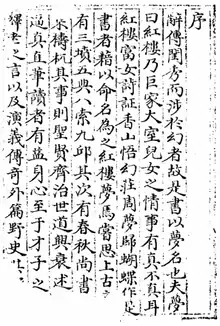 序
辭傳閨秀而涉於幻者故是書以夢名也夫夢
曰紅樓乃巨家大室兒女之情事有真不真耳
紅樓富女詩証香山悟幻莊周夢歸蝴蝶作是
書者藉以命名為之紅樓夢焉嘗思上古
有三墳五典八索九丘其次有春秋尚書
乘檮杌其事則聖賢齊治世道興衰述
逼真直筆讀者有益身心至于才子之
釋老之言以及演義傳奇外篇野史